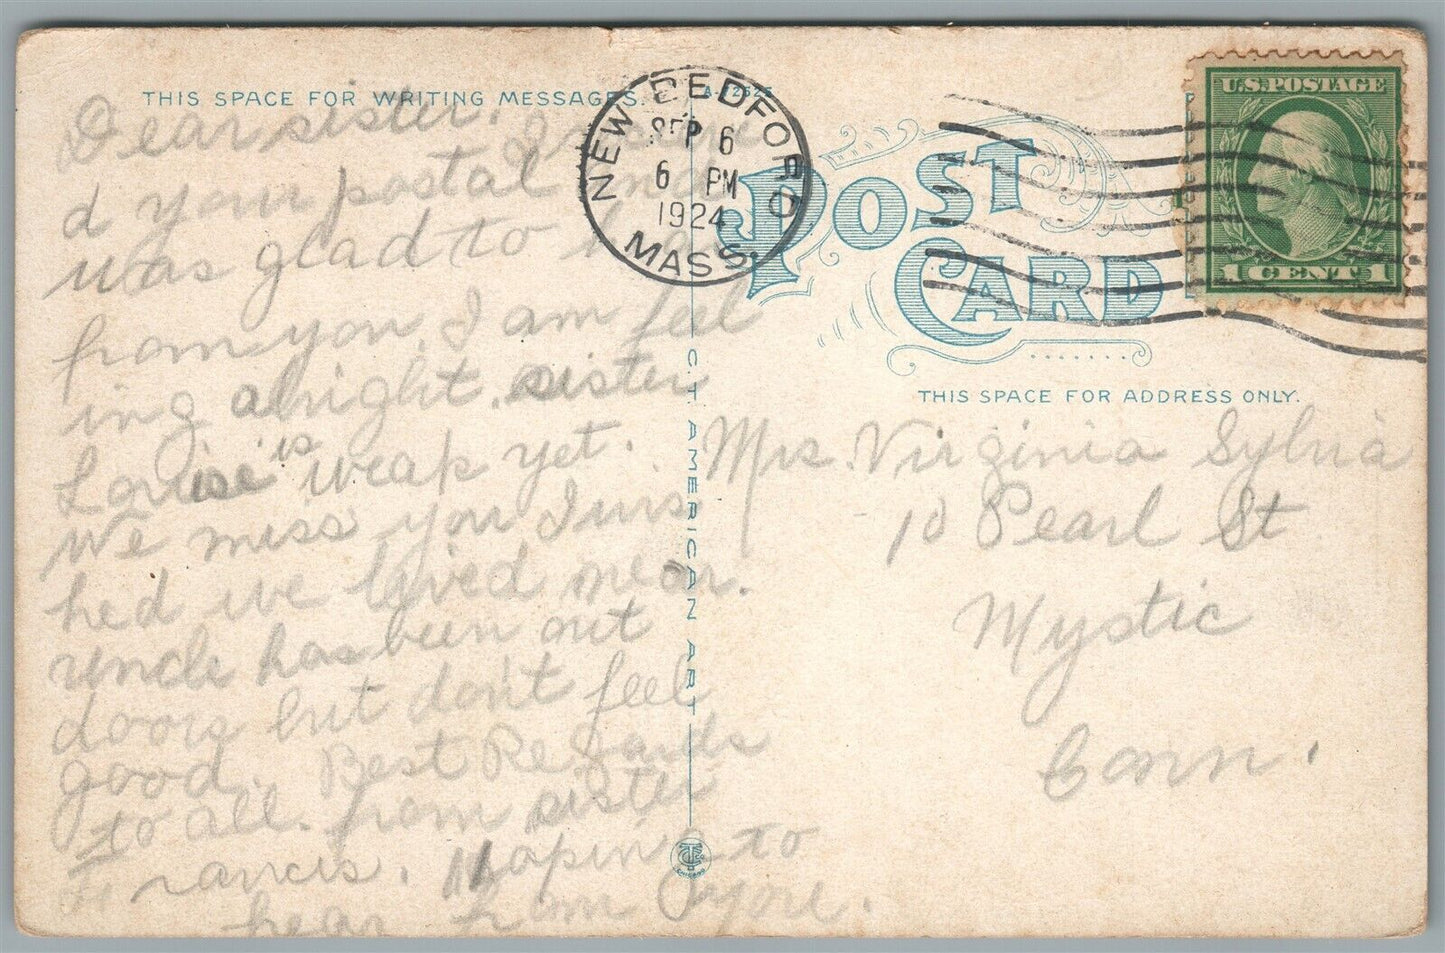 THIS SPACE FOR WRITING MESSAGES.
Dear sister. I receive
d your postal and
was glad to hear
from you, I am feel
ing alright. sister
Louise is weak yet.
We miss you I wis
hed we lived near.
uncle has been out
doors but don't feel
good. Best Regards
to all. from sister
Francis. Hopin to
hear from you.
NEW BEDFORD
SEP 6
6 PM
1924
MASS.
C.T. AMERICAN ART
CHICAGO
POST CARD
U.S. POSTAGE
1 CENT 1
THIS SPACE FOR ADDRESS ONLY.
Mrs. Virginia Sylvia
10 Pearl St
Mystic
Conn.